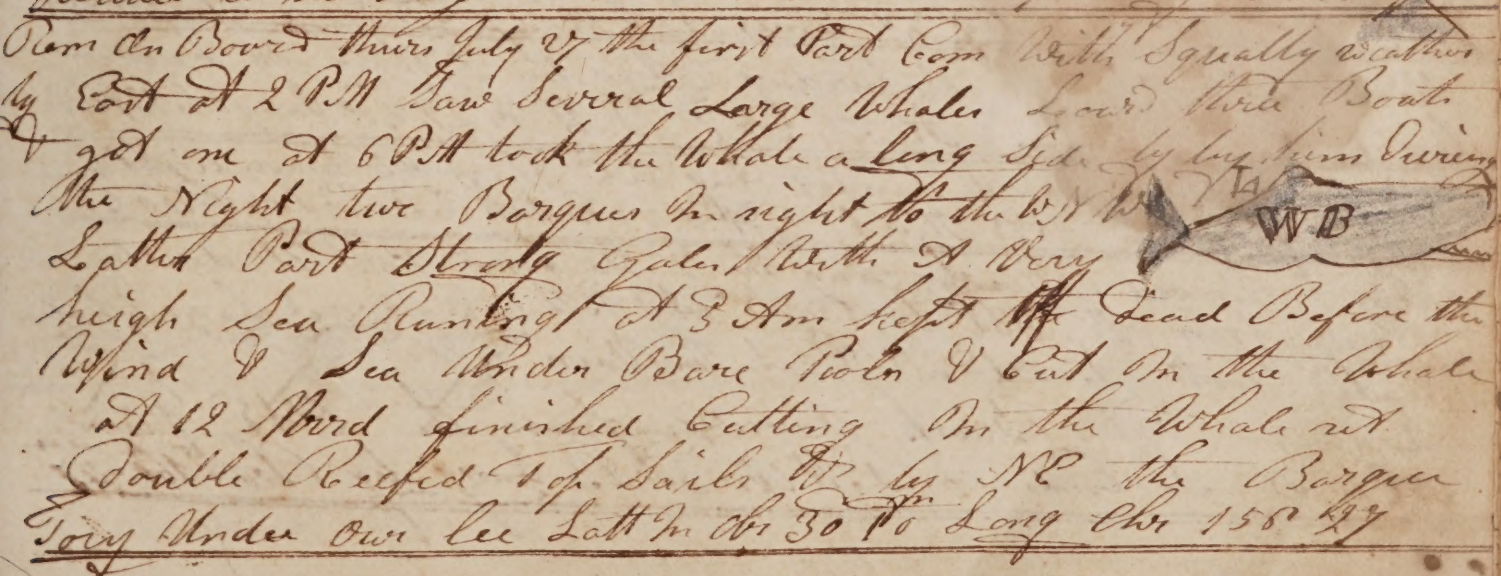 Rem On Board thurs July 27 the first Part Com With Squally weather
by East at 2 PM Saw Several Large Whales Lowrd three Boats
& got one at 6 PM took the Whale a long Side by him During
the Night two Barques In sight to the W N W
WB
Latter Part Strong Gales With A Very
heigh Sea Runing at 3 Am kept off Dead Before the
Wind & Sea Under Bare Pools & Cut In the Whale
at 12 Merd finished Cutting In the Whale set
Double Reefed Top Sails by NE the Barques
Under our lee Latt In obs 30 Long Chr 158